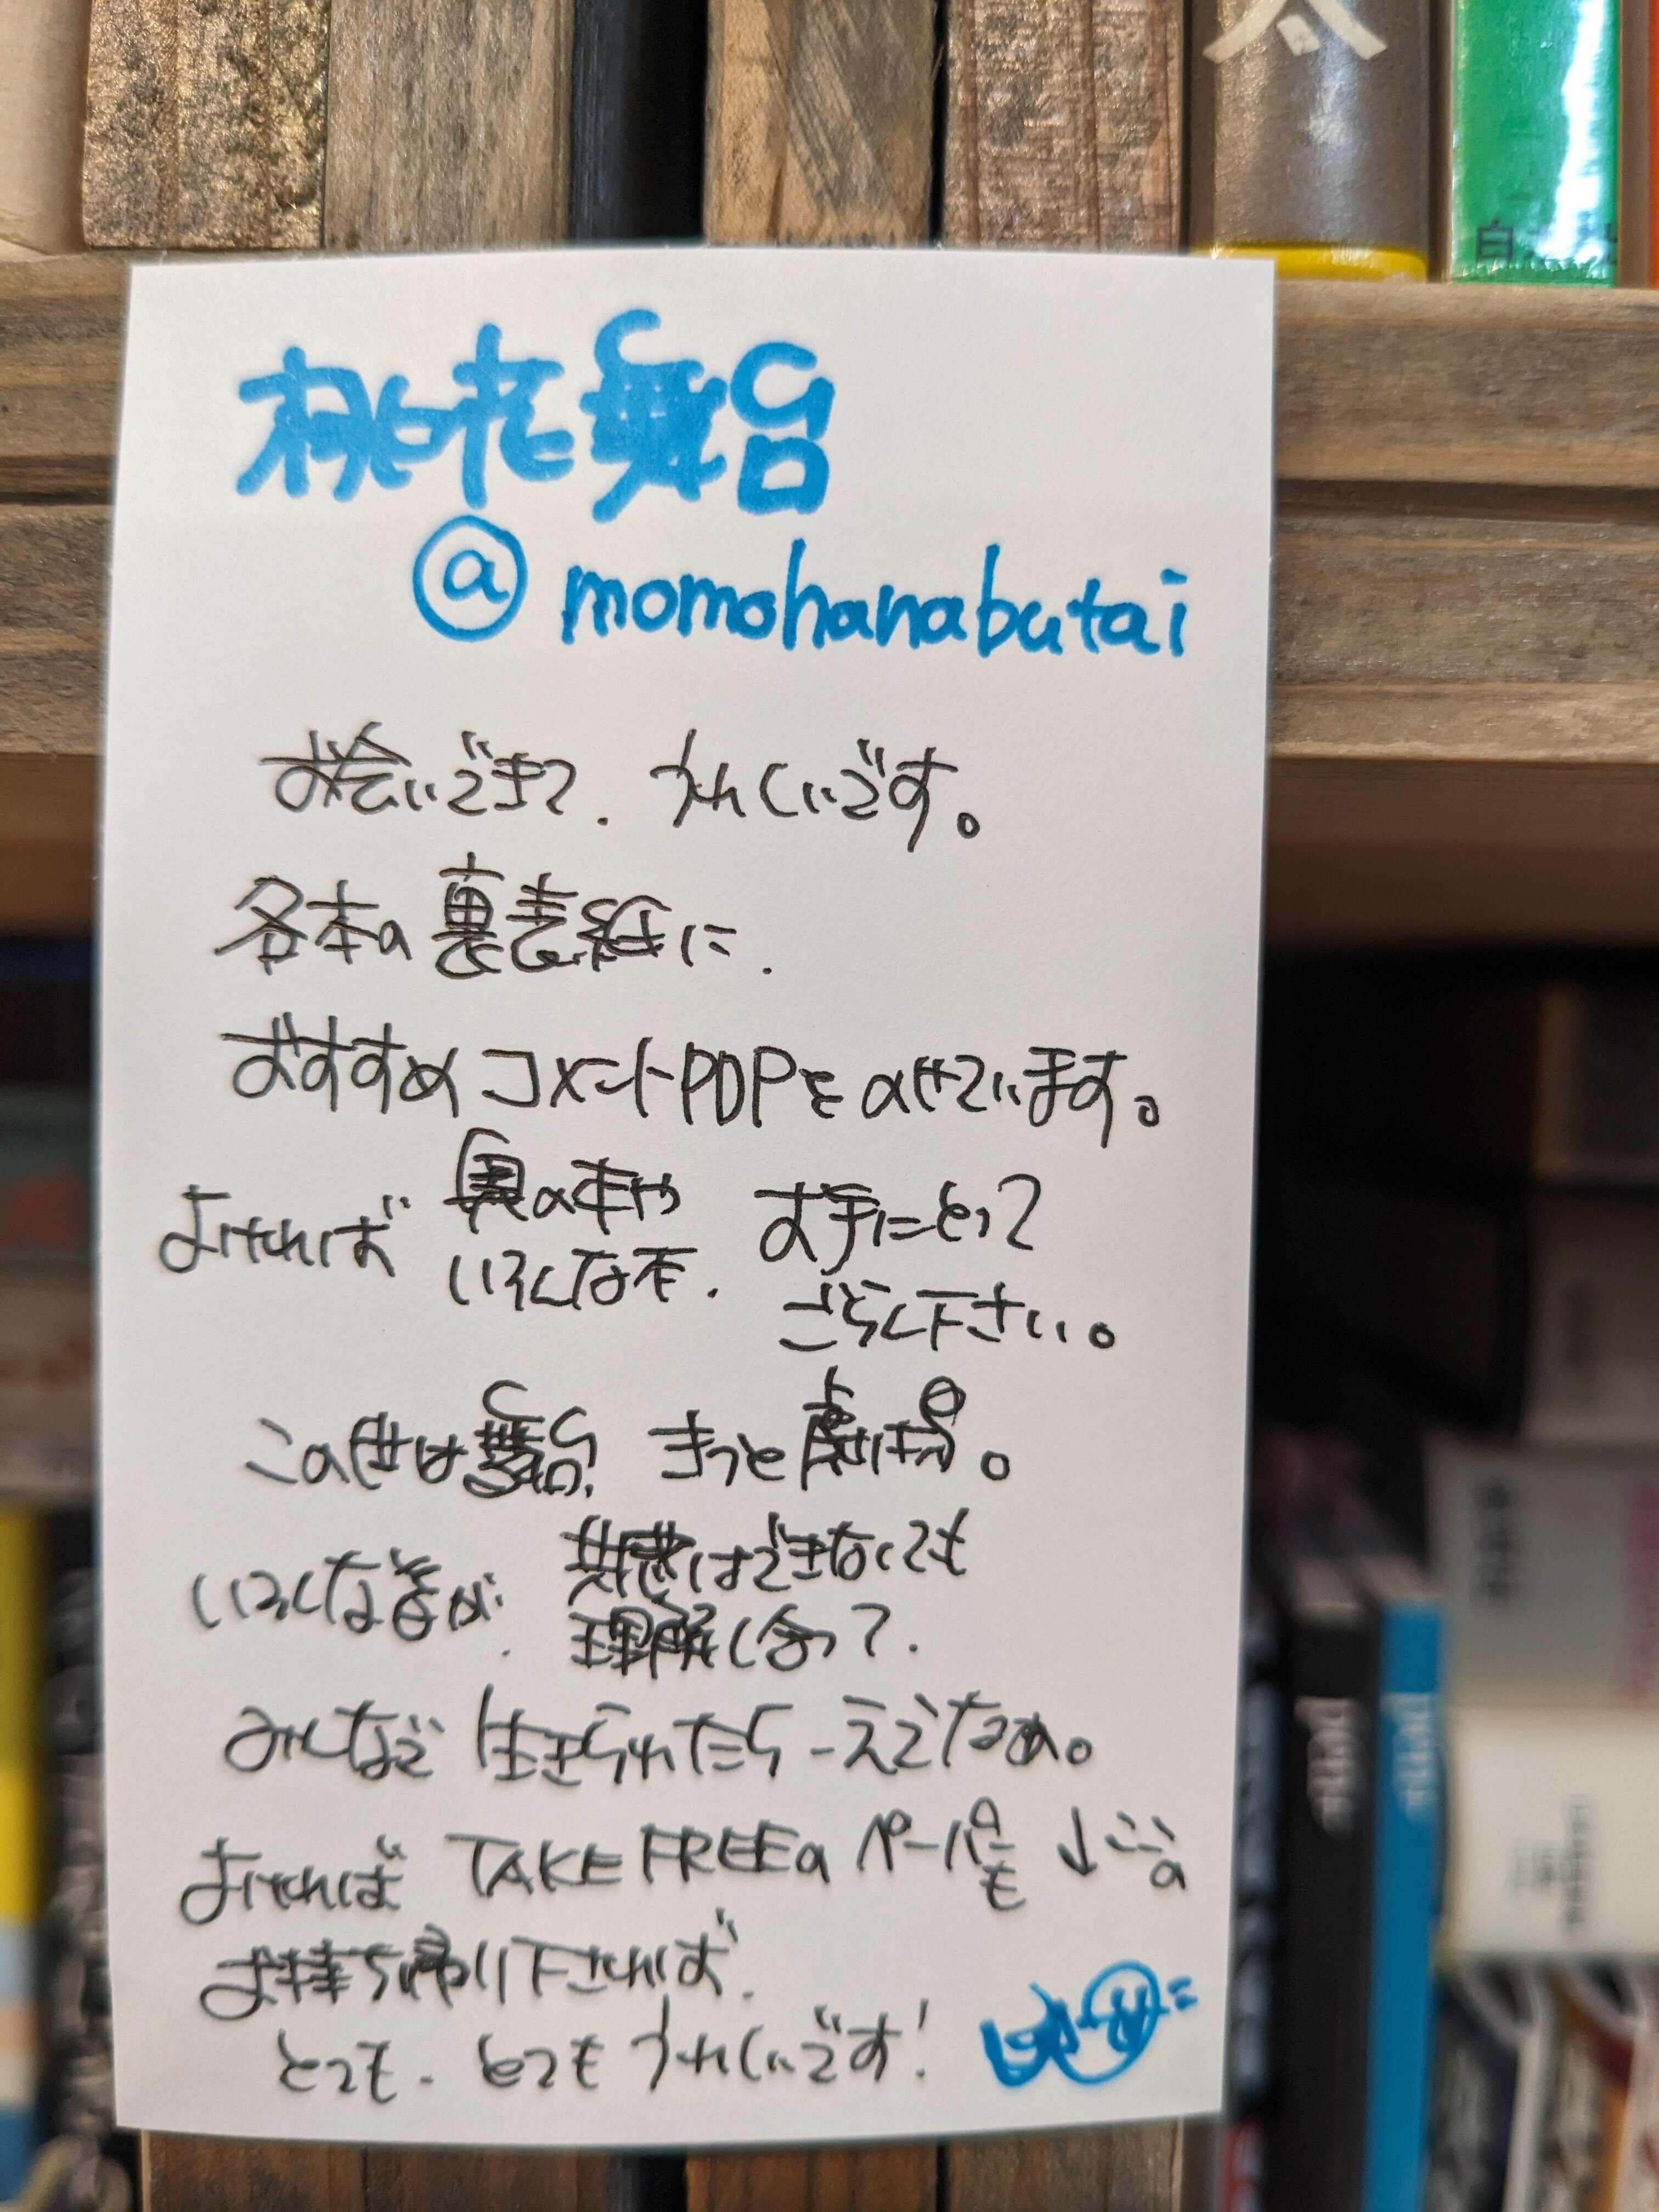 太
白水社
桃花舞台
@momohanabutai
お会いできて、うれしいです。
各本の裏表紙に、
おすすめコメントPOPをのせています。
よければ 奥の本や いろんな本、お手にとって
ごらん下さい。
この世は舞台、きっと劇場。
いろんな姿が、共感はできなくても
理解し合って、
みんなで 生きられたら ええなぁ。
よければ TAKE FREEの ペーパーも ↓ここの
お持ち帰り下されば、
とっても、とってもうれしいです!